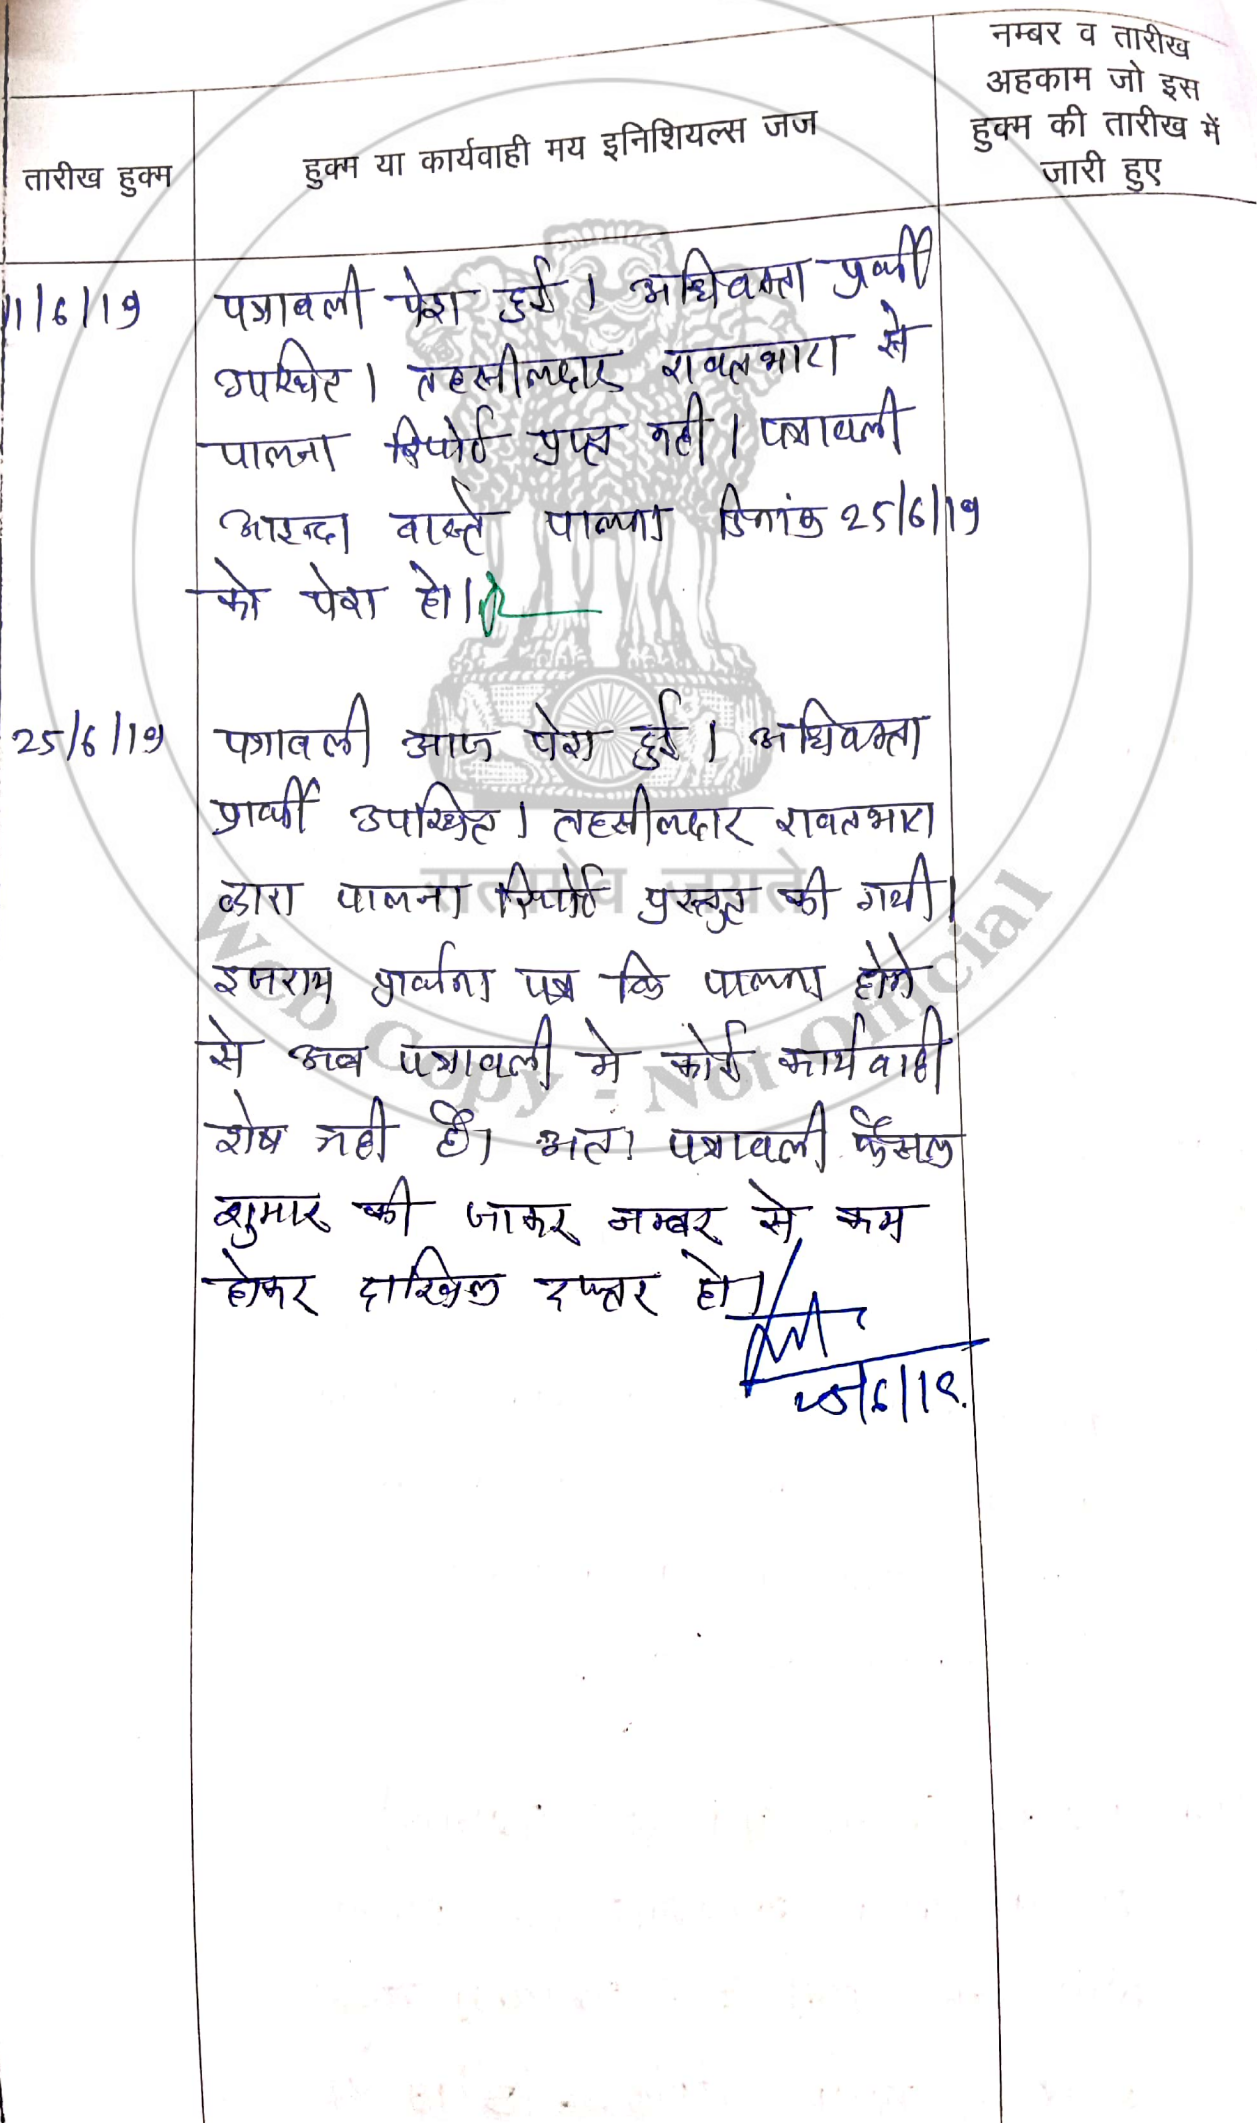 तारीख हुक्म
हुक्म या कार्यवाही मय इनिशियल्स जज
नम्बर व तारीख
अहकाम जो इस
हुक्म की तारीख में
जारी हुए
11/6/19
पत्रावली पेश हुई। अधिवक्ता प्रार्थी
उपस्थित। तहसीलदार रावतभाटा से
पालना रिपोर्ट प्राप्त नही। पत्रावली
आइन्दा वास्ते पालना दिनांक 25/6/19
को पेश हो।
25/6/19
पत्रावली आज पेश हुई। अधिवक्ता
प्रार्थी उपस्थित। तहसीलदार रावतभाटा
द्वारा पालना रिपोर्ट प्रस्तुत की गयी।
इजराय प्रार्थना पत्र कि पालना होने
से अब पत्रावली मे कोई कार्यवाही
शेष नही है। अतः पत्रावली फैसल
शुमार की जाकर नम्बर से कम
होकर दाखिल दफ्तर हो।
25/6/19.
सत्यमेव जयते
Web Copy - Not Official